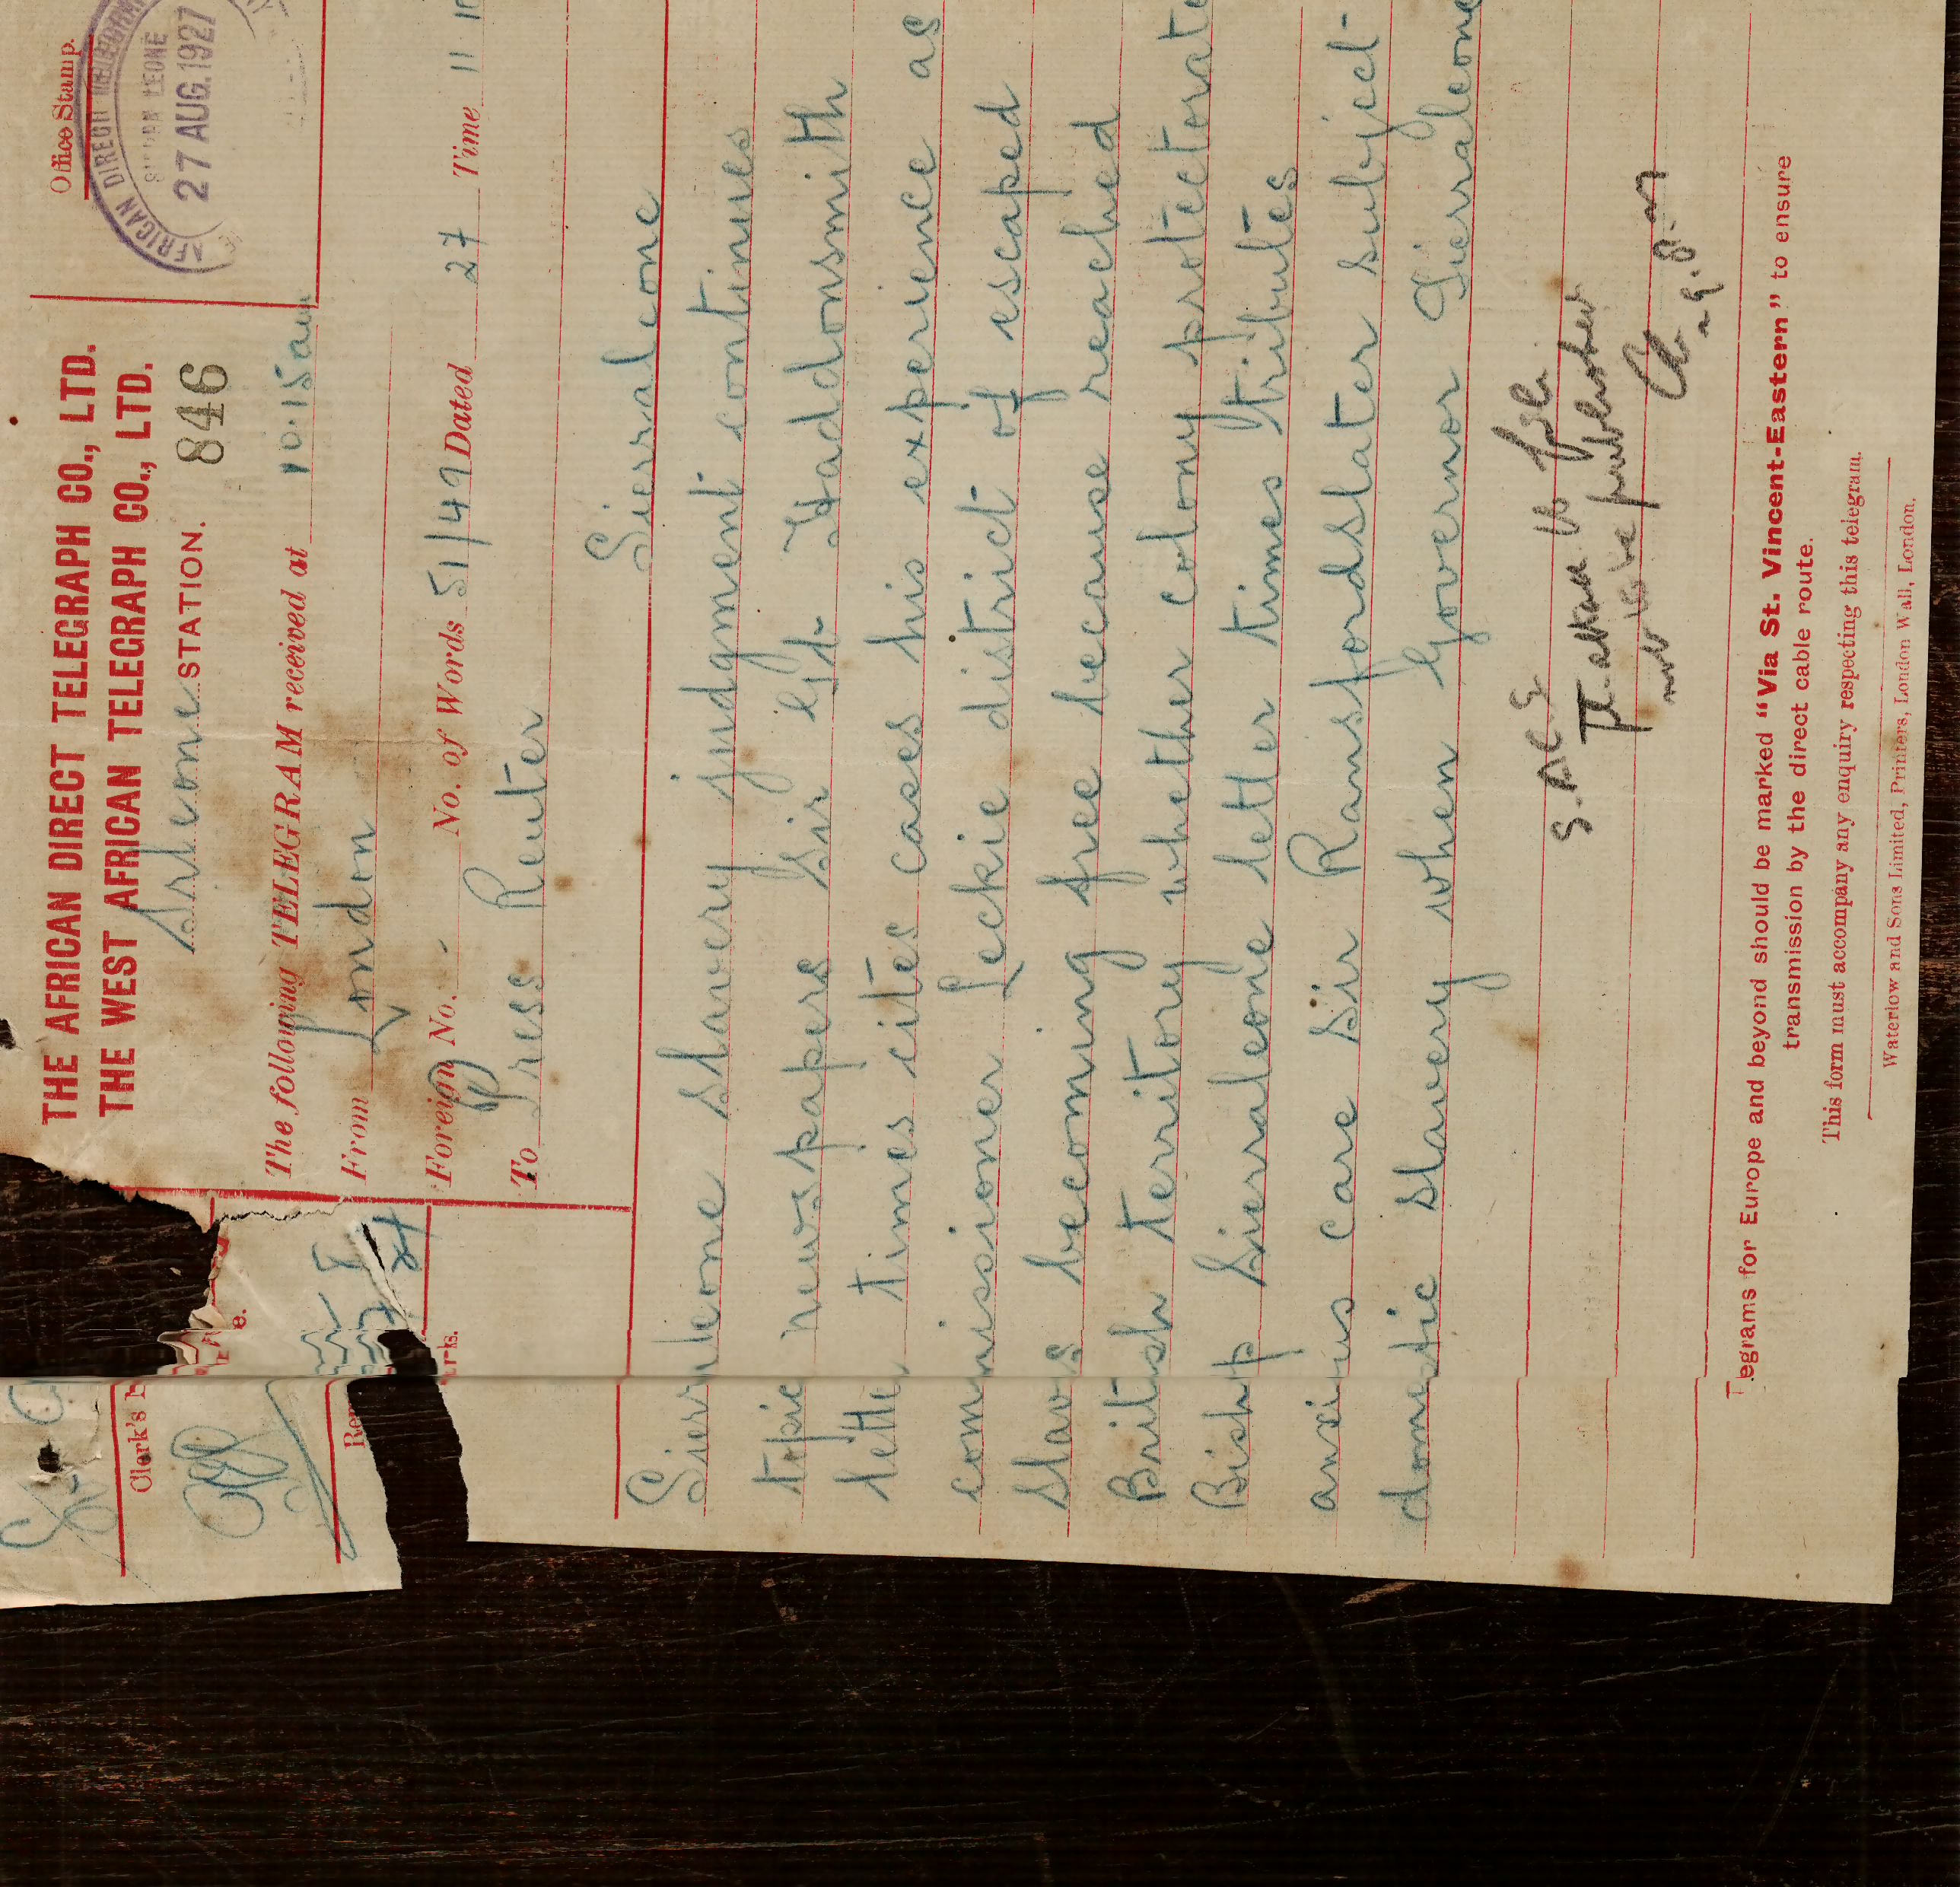 THE AFRICAN DIRECT TELEGRAPH CO., LTD.
THE WEST AFRICAN TELEGRAPH CO., LTD.
Srleone STATION.
846
Office Stamp.
AFRICAN DIRECT
SIERRA LEONE
27 AUG. 1927
The following TELEGRAM received at 10.15am
From London
Foreign No. - No. of Words 51/49 Dated 27 Time 11 10
To Press Reuter
Sierraleone
Clerk's
Sierraleone slavery judgment continues
topic newspapers Sir Gt- Haddonsmith
letter times cites cases his experience as
commissioner Leckie district of escaped
slaves becoming free because reached
British territory whether colony protectorate
Bishop Sierraleone letter times tributes
anxious care Sir Ransfordslater subject-
domestic slavery when Governor Sierraleone
Telegrams for Europe and beyond should be marked "Via St. Vincent-Eastern" to ensure
transmission by the direct cable route.
This form must accompany any enquiry respecting this telegram.
Waterlow and Sons Limited, Printers, London Wall, London.